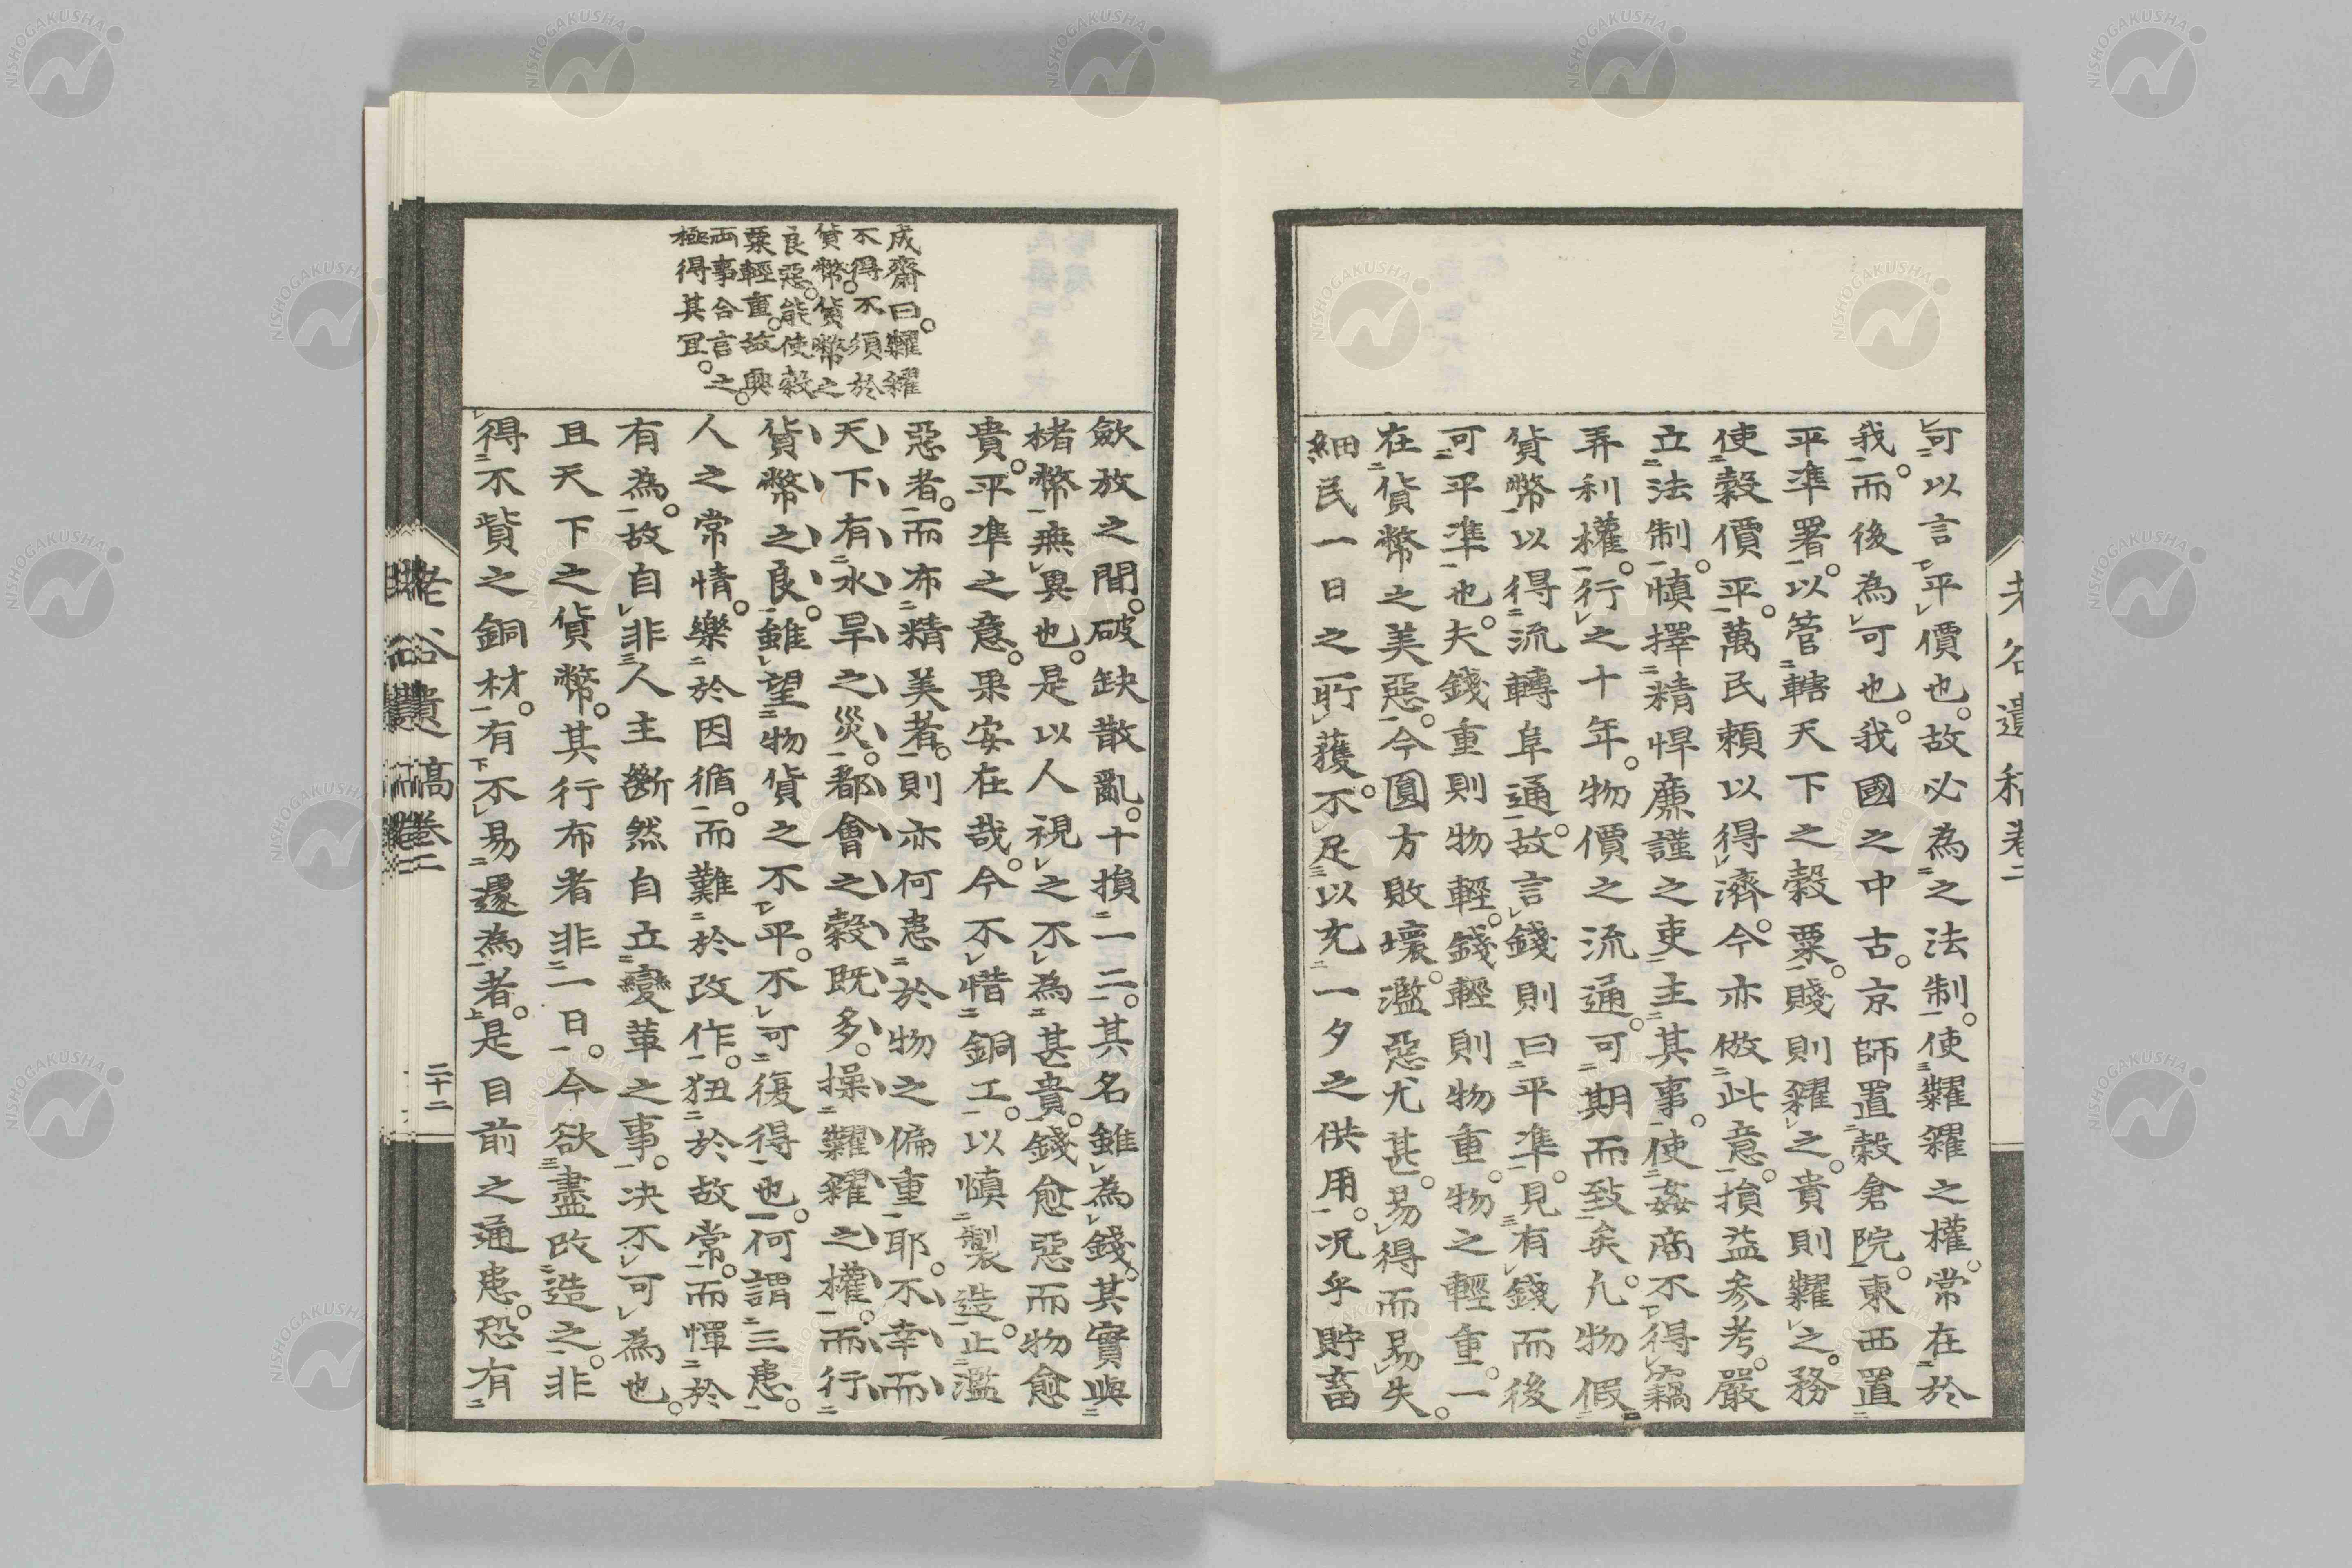 可以言平價也。故必為之法制。使糶糴之權。常在於
我。而後為可也。我國之中古。京師置穀倉院。東西置
平準署。以管轄天下之穀粟。賤則糴之。貴則糶之。務
使穀價平。萬民賴以得濟。今亦倣此意。損益参考。嚴
立法制。慎擇精悍廉謹之吏。主其事。使姦商不得竊
弄利權。行之十年。物價之流通。可期而致矣。凡物假
貨幣以得流轉阜通。故言錢則曰平準。見有錢而後
可平準也。夫錢重則物輕。錢輕則物重。物之輕重。一
在貨幣之美惡。今圓方敗壞。濫惡尤甚。易得而易失。
細民一日之所獲。不足以充一夕之供用。况乎貯畜
老谷遺稿卷二
成齋曰。糶糴
不得。不須於
貨幣。貨幣之
良惡。能使穀
粟輕重。故與
兩事合言之。
極得其宜。
斂放之間。破缺散亂。十損一二。其名雖為錢。其實與
楮幣無異也。是以人視之不為甚貴。錢愈惡而物愈
貴。平準之意。果安在哉。今不惜銅工。以慎製造。止濫
惡者。而布精美者。則亦何患於物之偏重耶。不幸而
天下有水旱之災。都會之穀既多。操糶糴之權。而行
貨幣之良。雖望物貨之不平。不可復得也。何謂三患。
人之常情。樂於因循。而難於改作。狃於故常。而憚於
有為。故自非人主斷然自立變革之事。决不可為也。
且天下之貨幣。其行布者非一日。今欲盡改造之。非
得不貲之銅材。有不易遽為者。是目前之通患。恐有
老谷遺稿卷二
二十二